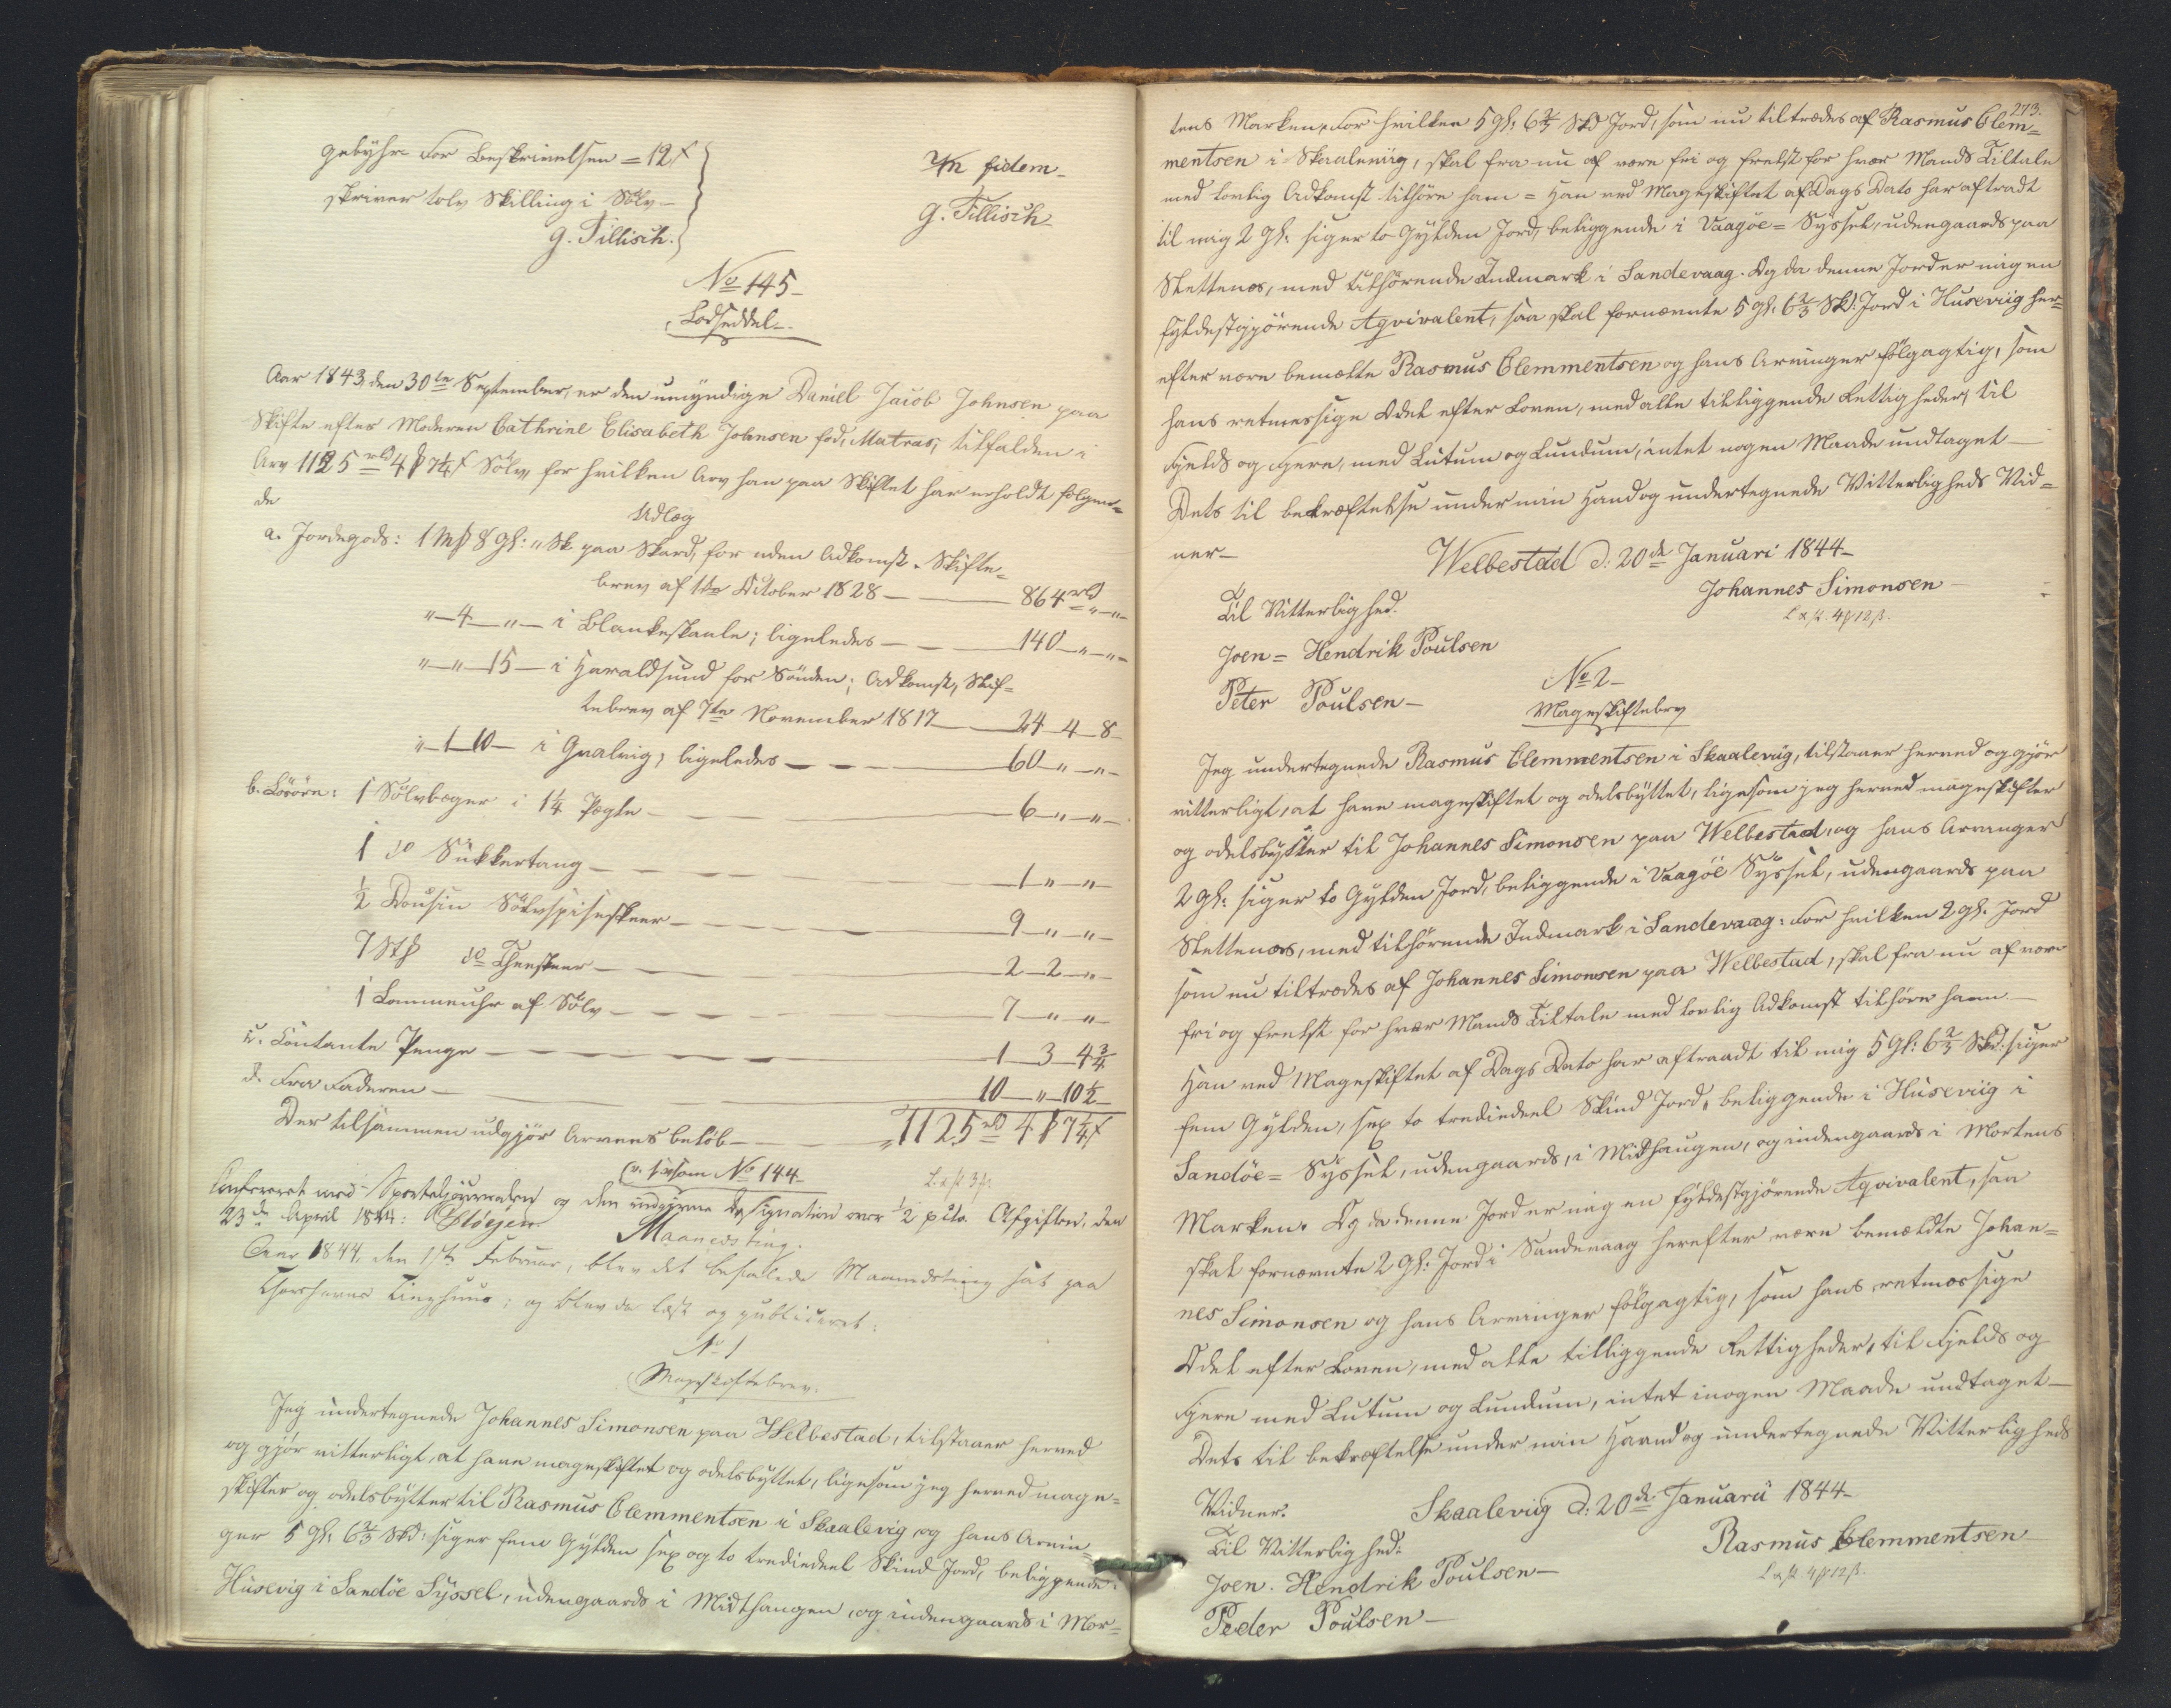 Gebyhr for Beskrivelsen = 12 ß
skriver tolv Skilling i Sølv -
G. Tillisch.
In fidem -
G. Tillisch
No 145 -
Lodseddel -
Aar 1843, den 30te September, er den umyndige Daniel Jacob Johnsen paa
Skifte efter Moderen Cathrine Elisabeth Johnsen fød, Matras, tilfalden i
Arv 1125 rbd 4 ꝟ 7¼ ß Sølv for hvilken Arv han paa Skiftet har erholdt følgen=
de
Udlæg
a. Jordegods: 1 Mk 8 Gl: " Sk paa Skard, for uden Adkomst. Skifte=
brev af 1te October 1828 — — 864 rbd " — " -
" — 4 — " — i Blankeskaale; ligeledes — — 140 — " — " -
" — " — 15 — i Haraldsund for Sønden; Adkomst, Skif=
tebrev af 7de November 1817 — 24 — 4 — 8 -
" — 1 — 10 — i Qvalvig, ligeledes — — — 60 — " — " -
b. Løsøre: 1 Sølvbæger i 1¼ Pægle — — — 6 — " — " -
1 do Sukkertang — — — — 1 — " — " -
½ Dousin Sølvspiseskeer — — — — 9 — " — " -
7 Stk do Theeskeer — — — 2 — 2 — " -
1 Lommeuhr af Sølv — — — — 7 — " — " -
c. Contante Penge — — — — 1 — 3 — 4¾
d. Fra Faderen — — — 10 — " — 10½
Der tilsammen udgjør Arvens beløb — — 1125 rbd 4 ꝟ 7¼ ß
(v. s. v. som No 144 -
Confereret med Sportuljournalen og den indgivne Designation over ½ pCto. Afgiften, den
23de April 1844:
Maanedsting.
Aar 1844, den 1ste Februar, blev det befalede Maanedsting sat paa
Thorshavns Tinghuus; og blev da læst og publiceret:
No 1
Mageskiftebrev.
Jeg undertegnede Johannes Simonsen paa Welbestad, tilstaaer herved
og gjør vitterligt, at have mageskiftet og odelsbyttet, ligesom jeg herved mage=
skifter og odelsbytter til Rasmus Clemmentsen i Skaalevig og hans Arvin=
ger 5 Gl: 6⅔ Skd: siger fem Gylden sex og to trediedeel Skind Jord, beliggende i
Husevig i Sandøe Syssel, udengaards i Midthaugen, og indengaards i Mor=
273.
tens Marken, For hvilken 5 Gl: 6⅔ Skd Jord, som nu tiltrædes af Rasmus Clem=
mentsen i Skaaleviig, skal fra nu af være fri og frelst for hver Mands Tiltale
med lovlig Adkomst tilhøre ham = Han ved Mageskiftet af Dags Dato har aftradt
til mig 2 Gl: siger to Gylden Jord, beliggende i Vaagøe = Syssel, udengaards paa
Slettenæs, med tilhørende Indmark i Sandevaag. Og da denne Jord er mig en
fyldestgjørende Æqvivalent, saa skal fornævnte 5 Gl: 6⅔ Skd: Jord i Huseviig her=
efter være bemælte Rasmus Clemmentsen og hans Arvinger følgagtig, som
hans retmessige Odel efter Loven, med alle tilliggende Rettigheder, til
Fjelds og Fjere, med Lutum og Lundum, intet nogen Maade undtaget —
Dets til bekræftelse under min Haand og undertegnede Vitterligheds Vid=
ner —
Welbestad d: 20de Januari 1844 —
Johannes Simonsen
Til Vitterlighed.
Joen = Hendrik Poulsen
Peter Poulsen —
No 2 -
Mageskiftebrev
Jeg undertegnede Rasmus Clemmentsen i Skaaleviig, tilstaaer herved og gjør
vitterligt, at have mageskiftet og odelsbyttet, ligesom jeg herved mageskifter
og odelsbytter til Johannes Simonsen paa Welbestad, og hans Arvinger
2 Gl: siger to Gylden Jord, beliggende i Vaagøe Syssel, udengaards paa
Slettenæs, med tilhørende Indmark i Sandevaag: For hvilken 2 Gl: Jord
som nu tiltrædes af Johannes Simonsen paa Welbestad, skal fra nu af være
fri og frelst for hver Mands Tiltale med lovlig Adkomst tilhøre ham. —
Han ved Mageskiftet af Dags Dato har aftraadt til mig 5 Gl: 6⅔ Skd: siger
fem Gylden, sex to trediedeel Skind Jord, beliggende i Huseviig i
Sandøe = Syssel, udengaards, i Midhaugen, og indengaards i Mortens
Marken. Og da denne Jord er mig en fyldestgjørende Æqvivalent, saa
skal fornævnte 2 Gl: Jord i Sandevaag herefter være bemældte Johan=
nes Simonsen og hans Arvinger følgagtig, som hans retmæssige
Odel efter Loven, med alle tilliggende Rettigheder, til Fjelds og
Fjere med Lutum og Lundum, intet i nogen Maade undtaget —
Dets til bekræftelse under min Haand og undertegnede Vitterligheds
Vidner.
Skaaleviig d: 20de Januarii 1844 —
Rasmus Clemmentsen
Til Vitterlighed:
Joen. Hendrik Poulsen —
Peder Poulsen —